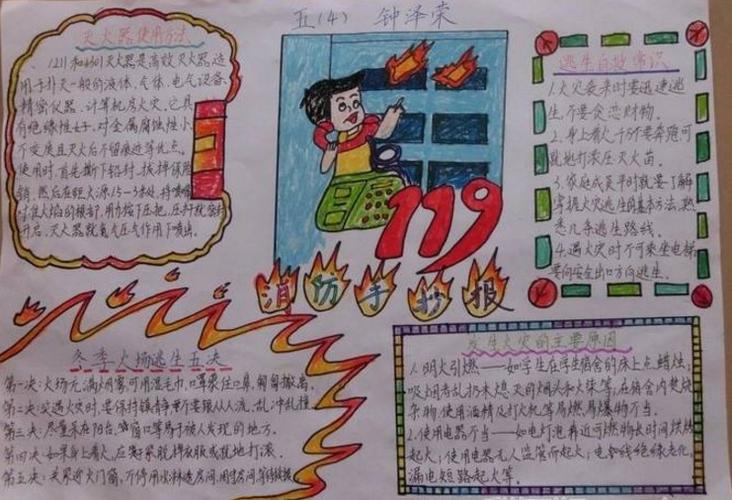 五(4) 钟泽荣
灭火器使用方法
1211和1301灭火器是高效灭火器,适
用于扑灭一般的液体、气体、电气设备、
精密仪器、计算机房火灾,它具
有绝缘性好,对金属腐蚀性小,
不变质且灭火后不留痕迹等优点。
使用时,首先撕下铅封,拔掉保险
销,然后在距火源1.5-3米处,将喷嘴
对准火焰的根部,用力按下压把,压杆就
开启,灭火器就氮气压气作用下喷出。
119
消防手抄报
逃生自救常识
1.火灾袭来时要迅速逃
生,不要贪恋财物。
2.身上着火,千万不要奔跑,可
就地打滚压灭火苗。
3.家庭成员平时就要了解
掌握火灾逃生的基本方法,熟
悉几条逃生路线。
4.遇火灾时不可乘坐电梯,
要向安全出口方向逃生。
冬季火场逃生五决
第一决:火场充满烟雾,可用湿毛巾、口罩蒙住口鼻,匍匐撤离。
第二决:突遇火灾时,要保持镇静,不要跟从人流、乱冲乱撞。
第三决:尽量呆在阳台、窗口等易于被人发现的地方。
第四决:如果身上着火,应赶紧脱掉衣服或就地打滚。
第五决:关紧迎火门窗,不停用水淋透房间,
发生火灾的主要原因
1.明火引燃——如学生在学生宿舍的床上点蜡烛;
吸烟者乱扔未熄灭的烟头和火柴等;在宿舍内焚烧
杂物;使用酒精及打火机等易燃易爆物不当。
2.使用电器不当——如电灯泡靠近可燃物长时间烘烤
起火;使用电器无人监管而起火;电会线绝缘老化,
漏电短路起火等。